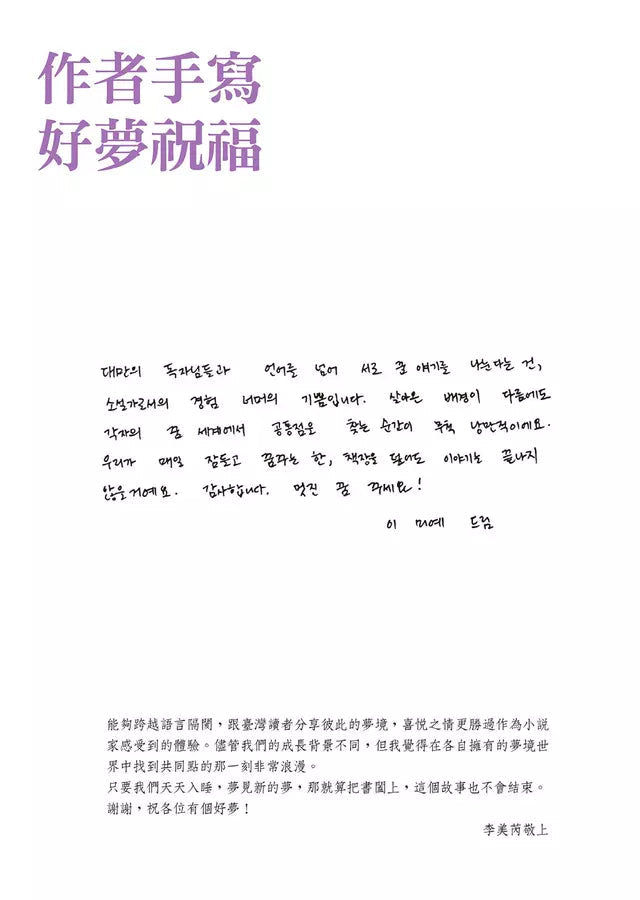 作者手寫
好夢祝福
대만의 독자님들과 언어를 넘어 서로 꾼 얘기를 나눈다는 건,
소설가로서의 경험 너머의 기쁨입니다. 살아온 배경이 다름에도
각자의 꿈 세계에서 공통점을 찾는 순간이 무척 낭만적이에요.
우리가 매일 잠들고 꿈꾸는 한, 책장을 덮어도 이야기는 끝나지
않을거예요. 감사합니다. 멋진 꿈 꾸세요!
이 미예 드림
能夠跨越語言隔閡，跟臺灣讀者分享彼此的夢境，喜悅之情更勝過作為小說
家感受到的體驗。儘管我們的成長背景不同，但我覺得在各自擁有的夢境世
界中找到共同點的那一刻非常浪漫。
只要我們天天入睡，夢見新的夢，那就算把書闔上，這個故事也不會結束。
謝謝，祝各位有個好夢！
李美芮敬上